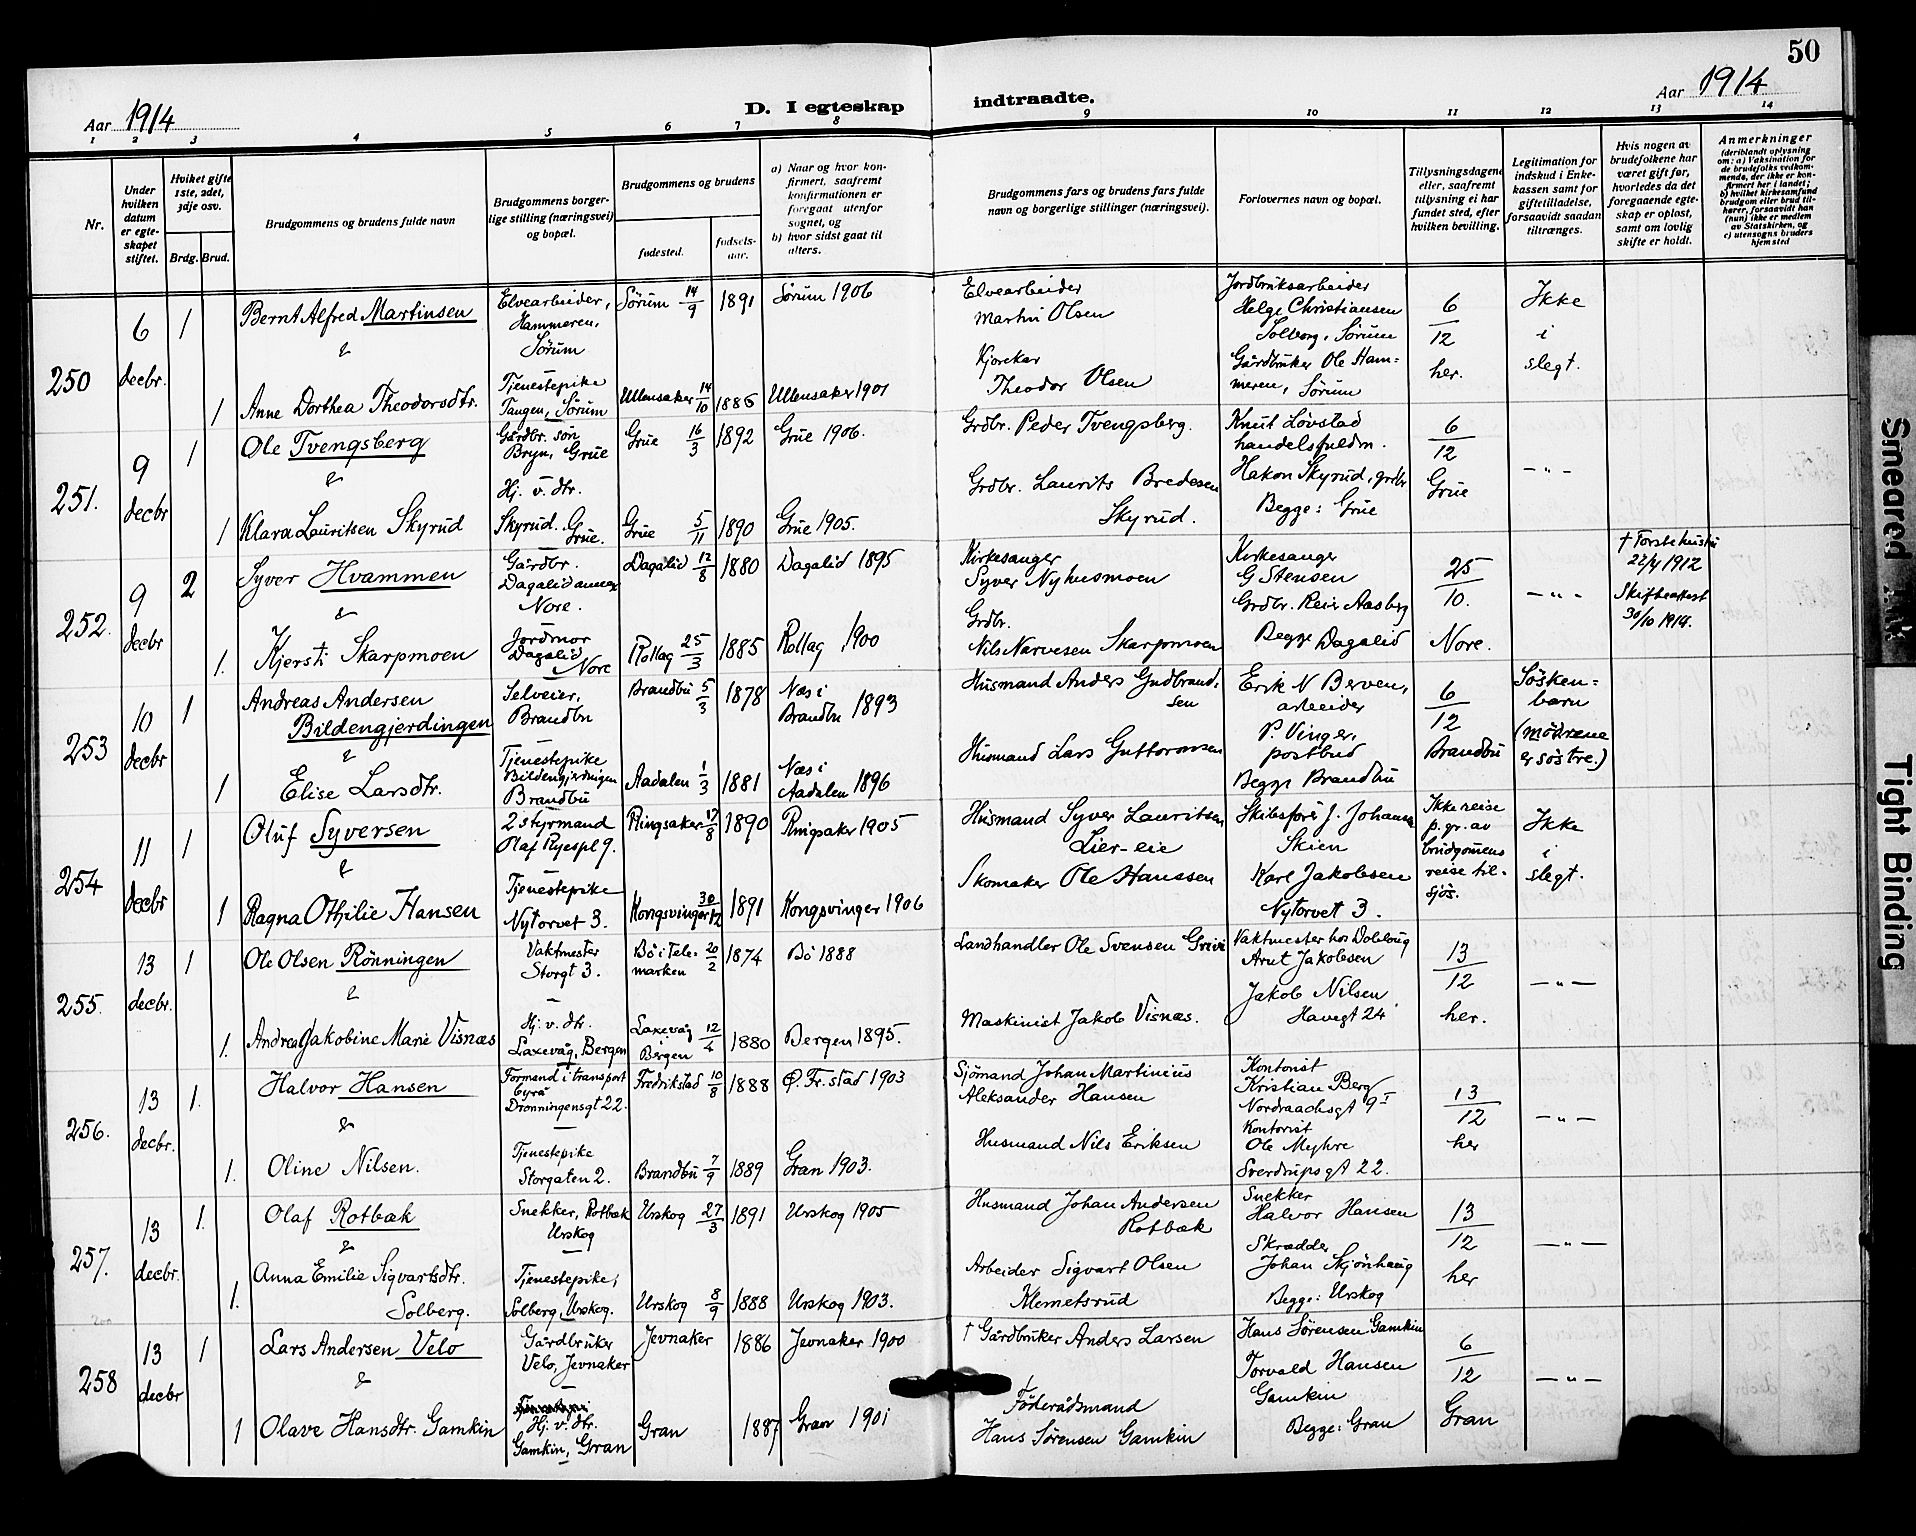 50
Aar 1914
D. I egteskap
indtraadte.
Aar 1914
1 2 3 4 5 6 7 8 9 10 11 12 13 14
Nr.
Under hvilken datum er egteskapet stiftet.
Hvilket gifte 1ste, 2det, 3dje osv.
Brdg. Brud.
Brudgommens og brudens fulde navn
Brudgommens borgerlige stilling (næringsvei) og bopæl.
Brudgommens og brudens
fødested.
fødselsaar.
a) Naar og hvor konfirmert, saafremt konfirmationen er foregaat utenfor sognet, og
b) hvor sidst gaat til alters.
Brudgommens fars og brudens fars fulde navn og borgerlige stillinger (næringsvei).
Forlovernes navn og bopæl.
Tillysningsdagene eller, saafremt tillysning ei har fundet sted, efter hvilken bevilling.
Legitimation for indskud i Enkekassen samt for giftetilladelse, forsaavidt saadan tiltrænges.
Hvis nogen av brudefolkene har været gift før, hvorledes da det foregaaende egteskap er opløst, samt om lovlig skifte er holdt.
Anmerkninger
(deriblandt oplysning om: a) Vaksination for de brudefolks vedkommende, der ikke er konfirmert her i landet; b) hvilket kirkesamfund brudgom eller brud tilhører, forsaavidt han (hun) ikke er medlem av Statskirken, og c) utensogns bruders hjemsted
250
6 decbr.
1
Bernt Alfred Martinsen
&
Elvearbeider,
Hammeren,
Sørum
Sørum 14/9 1891
Sørum 1906
Elvearbeider
Martin Olsen
Jordbruksarbeider
Helge Christiansen
Solberg, Sørum
6/12
her.
Ikke
i
slegt.
1
Anne Dorthea Theodorsdtr.
Tjenestepike
Tangen, Sørum
Ullensaker 14/10 1886
Ullensaker 1901
Kjørekar
Theodor Olsen
Gårdbruker Ole Ham-
meren, Sørum
251.
9 decbr
1
Ole Tvengsberg
&
Gårdbr. søn
Bryn, Grue
Grue 16/3 1892
Grue 1906.
Grdbr. Peder Tvengsberg.
Knut Løvstad
handelsfuldm.
6/12
Grue
— " —
1
Klara Lauritsen Skyrud
Hj. v. dtr.
Skyrud. Grue.
Grue 5/11 1890
Grue 1905.
Grdbr. Laurits Bredesen
Skyrud.
Hakon Skyrud, grdbr
Begge: Grue
252.
9 decbr
2
Syver Hvammen
&
Gårdbr.
Dagalid annex
Nore.
Dagalid 12/8 1880
Dagalid 1895
Kirkesanger
Syver Nyhusmoen
Kirkesanger
G Stensen
25/10.
Nore.
— " —
† Første hustru
22/4 1912
Skifteattest
30/10 1914.
1.
Kjersti Skarpmoen
Jordmor
Dagalid
Nore
Rollag 25/3 1885
Rollag 1900
Grdbr.
Nils Narvesen Skarpmoen
Grdbr. Reier Aasberg
Begge Dagalid
253
10 decbr
1
Andreas Andersen
Bildengjerdingen
&
Selveier,
Brandbu
Brandbu 5/3 1878
Næs i
Brandbu 1893
Husmand Anders Gudbrand-
sen
Erik N Berven,
arbeider
6/12
Brandbu
Søsken-
barn
(mødrene
er søstre.)
1
Elise Larsdtr.
Tjenestepike
Bildengjerdingen
Brandbu
Aadalen 1/3 1881
Næs i
Aadalen 1896
Husmand Lars Guttormsen
P. Vinger,
postbud
Begge Brandbu
254
11 decbr
1
Oluf Syversen
&
2 styrmand
Olaf Ryespl 9.
Ringsaker 17/8 1890
Ringsaker 1905
Husmand Syver Lauritsen
Lier-eie
Skibsfører J. Johansen
Skien
Ikke reise
p. gr. av
brudgomens
reise til-
sjøs.
Ikke
i
slegt.
1
Ragna Othilie Hansen
Tjenestepike
Nytorvet 3.
Kongsvinger 30/12 1891
Kongsvinger 1906
Skomaker Ole Hanssen
Karl Jakobsen
Nytorvet 3.
255.
13 decbr.
1
Ole Olsen Rønningen
&
Vaktmester
Storgt 3.
Bø i Tele-
marken 20/2 1874
Bø 1888
Landhandler Ole Svensen Grivi
Vaktmester hos Dobloug
Arnt Jakobsen
13/12
her.
— " —
1.
Andrea Jakobine Marie Visnæs
Hj. v. dtr.
Laxevåg, Bergen
Laxevåg
Bergen 12/4 1880
Bergen 1895.
Maskinist Jakob Visnæs.
Jakob Nilsen
Havegt 24
256.
13 decbr.
1.
Halvor Hansen
&
Formand i transport
byrå
Dronningensgt 22.
Fredrikstad 10/8 1888
Ø. Fr.stad 1903
Sjømand Johan Martinius
Aleksander Hansen
Kontorist
Kristian Berg
Nordraachsgt 9 I
13/12
her
— " —
1.
Oline Nilsen.
Tjenestepike
Storgaten 2.
Brandbu 7/9 1889
Gran 1903.
Husmand Nils Eriksen
Kontorist
Ole Myhre
Sverdrupsgt 22.
257.
13 decbr.
1.
Olaf Rotbæk
&
Snekker, Rotbæk
Urskog
Urskog 27/3 1891
Urskog 1905
Husmand Johan Andersen
Rotbæk
Snekker
Halvor Hansen
13/12
her
— " —
1.
Anna Emilie Sigvartsdtr.
Solberg.
Tjenestepike,
Solberg, Urskog.
Urskog 8/9 1888
Urskog 1903.
Arbeider Sigvart Olsen
Klemetsrud
Skrædder
Johan Skjønhaug
Begge: Urskog
258
13 decbr
1
Lars Andersen Velo
&
Gårdbruker
Velo, Jevnaker
Jevnaker 1886
Jevnaker 1900
† Gårdbruker Anders Larsen
Hans Sørensen Gamkin
6/12
Gran
— " —
1
Olave Hansdtr. Gamkin
Hj. v. dtr.
Gamkin, Gran
Gran 1887
Gran 1901
Føderådsmand
Hans Sørensen Gamkin
Torvald Hansen
Gamkin
Begge: Gran
Smeared Ink
Tight Binding